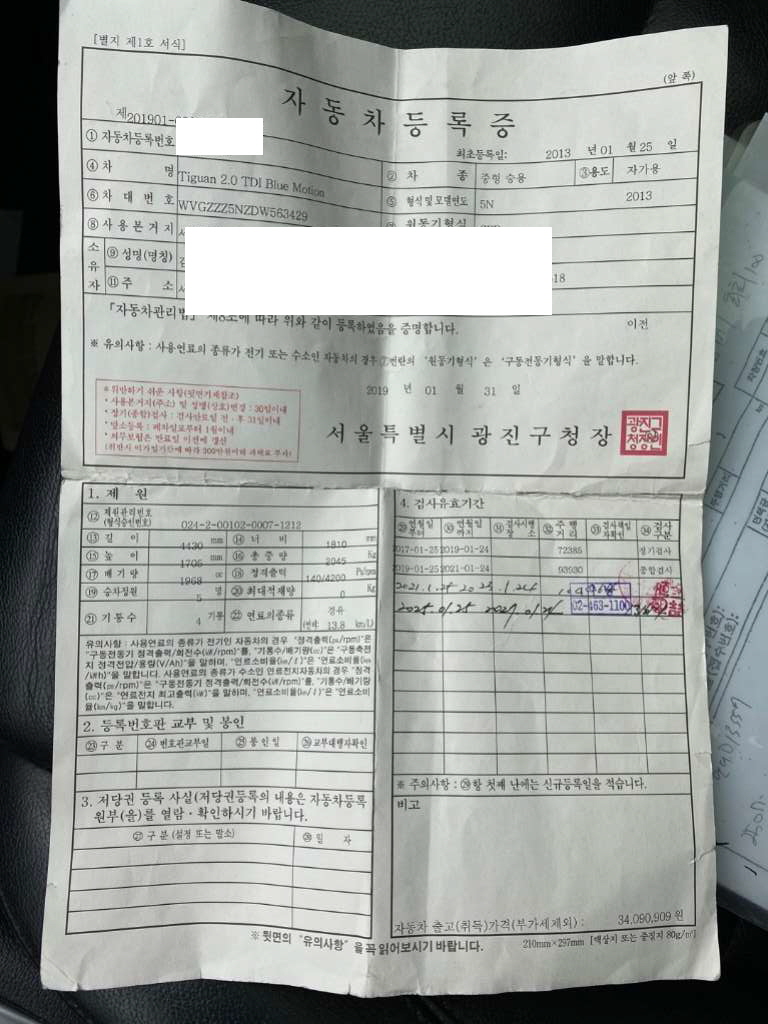 [별지 제1호 서식]
(앞 쪽)
자 동 차 등 록 증
제201901-
① 자동차등록번호
최초등록일: 2013 년 01 월 25 일
④ 차 명 Tiguan 2.0 TDI Blue Motion
② 차 종 중형 승용 ③용도 자가용
⑥ 차 대 번 호 WVGZZZ5NZDW563429
⑤ 형식 및 모델연도 5N 2013
⑧ 사 용 본 거 지
원동기형식
소유자
⑨ 성명(명칭)
⑪ 주 소
18
「자동차관리법」 제8조에 따라 위와 같이 등록하였음을 증명합니다.
이전
※ 유의사항 : 사용연료의 종류가 전기 또는 수소인 자동차의 경우 ⑦번란의 '원동기형식'은 '구동전동기형식'을 말합니다.
2019 년 01 월 31 일
※위반하기 쉬운 사항(뒷면기재참조)
· 사용본거지(주소) 및 성명(상호)변경 : 30일이내
· 정기(종합)검사 : 검사만료일 전 · 후 31일이내
· 말소등록 : 폐차일로부터 1월이내
· 의무보험은 만료일 이전에 갱신
(위반시 이가일기간에 따라 300만원이하 과태료 부과)
서 울 특 별 시 광 진 구 청 장
광진구
청장인
1. 제 원
⑫ 제원관리번호 (형식승인번호) 024-2-00102-0007-1212
⑬ 길 이 4430 mm ⑭ 너 비 1810 mm
⑮ 높 이 1705 mm ⑯ 총 중 량 2045 Kg
⑰ 배 기 량 1968 cc ⑱ 정격출력 140/4200 Ps/rpm
⑲ 승차정원 5 명 ⑳ 최대적재량 0 Kg
㉑ 기 통 수 4 기통 ㉒ 연료의종류 경유 (연비: 13.8 km/L)
유의사항 : 사용연료의 종류가 전기인 자동차의 경우 "정격출력(ps/rpm)"은
"구동전동기 정격출력/회전수(㎾/rpm)"를, "기통수/배기량
(cc)"은 "구동축전
지 정격전압/용량(V/Ah)"을 말하며, "연료소비율(㎞/ℓ)"은 "연료소비율(㎞
/㎾h)"을 말합니다. 사용연료의 종류가 수소인 연료전지자동차의 경우 "정격
출력(ps/rpm)"은 "구동전동기 정격출력/회전수(㎾/rpm)"를, "기통수/배기량
(cc)"은 "연료전지 최고출력(㎾)"을 말하며, "연료소비율(㎞/ℓ)"은 "연료소비
율(㎞/㎏)"을 말합니다.
2. 등록번호판 교부 및 봉인
㉓ 구 분 ㉔ 번호판교부일 ㉕ 봉 인 일 ㉖교부대행자확인
3. 저당권 등록 사실(저당권등록의 내용은 자동차등록
원부(을)를 열람 · 확인하시기 바랍니다.
㉗ 구 분 (설정 또는 말소) ㉘ 일 자
4. 검사유효기간
㉙ 연월일 부터 ㉚ 연월일 까지 ㉛ 검사시행 장소 ㉜ 주 행 거 리 ㉝ 검사책임 자확인 ㉞ 검사 구분
2017-01-25 2019-01-24 72385 정기검사
2019-01-25 2021-01-24 93930 종합검사
2021.1.25 2023.1.24
2025.01.25 2027.01.24
02-463-1100
※ 주의사항 : ㉙항 첫째 난에는 신규등록일을 적습니다.
비고
자동차 출고(취득)가격(부가세제외) : 34,090,909 원
※ 뒷면의 "유의사항"을 꼭 읽어보시기 바랍니다.
210mm×297mm [백상지 또는 중질지 80g/㎡]